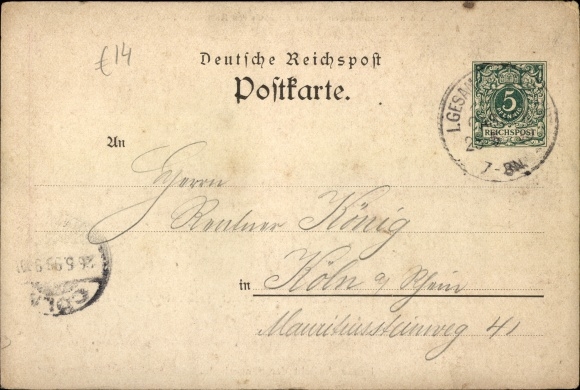 £14
Deutsche Reichspost
Postkarte.
5
REICHSPOST
I. GESA
7-8N.
An
Herrn
Rentner König
in Köln a/Rhein
Mauritiussteinweg 41
26.5.95
CÖLN